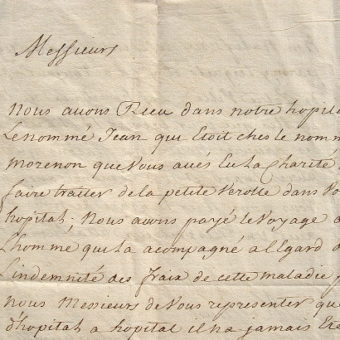 Messieurs
Nous avons Receu dans notre hopita
Le nommé Jean qui Etoit chés le nomm
morenon que Vous aués Eu La Charité
faire traiter de la petite Verolle dans Vo
hopital; Nous avons payé le Voyage a
L'homme qui La acompagné a l'Egard d
L'indemnité des fraix de cette maladie p
nous Messieurs de Vous representer que
d'hopital a hopital il n'a jamais Eté